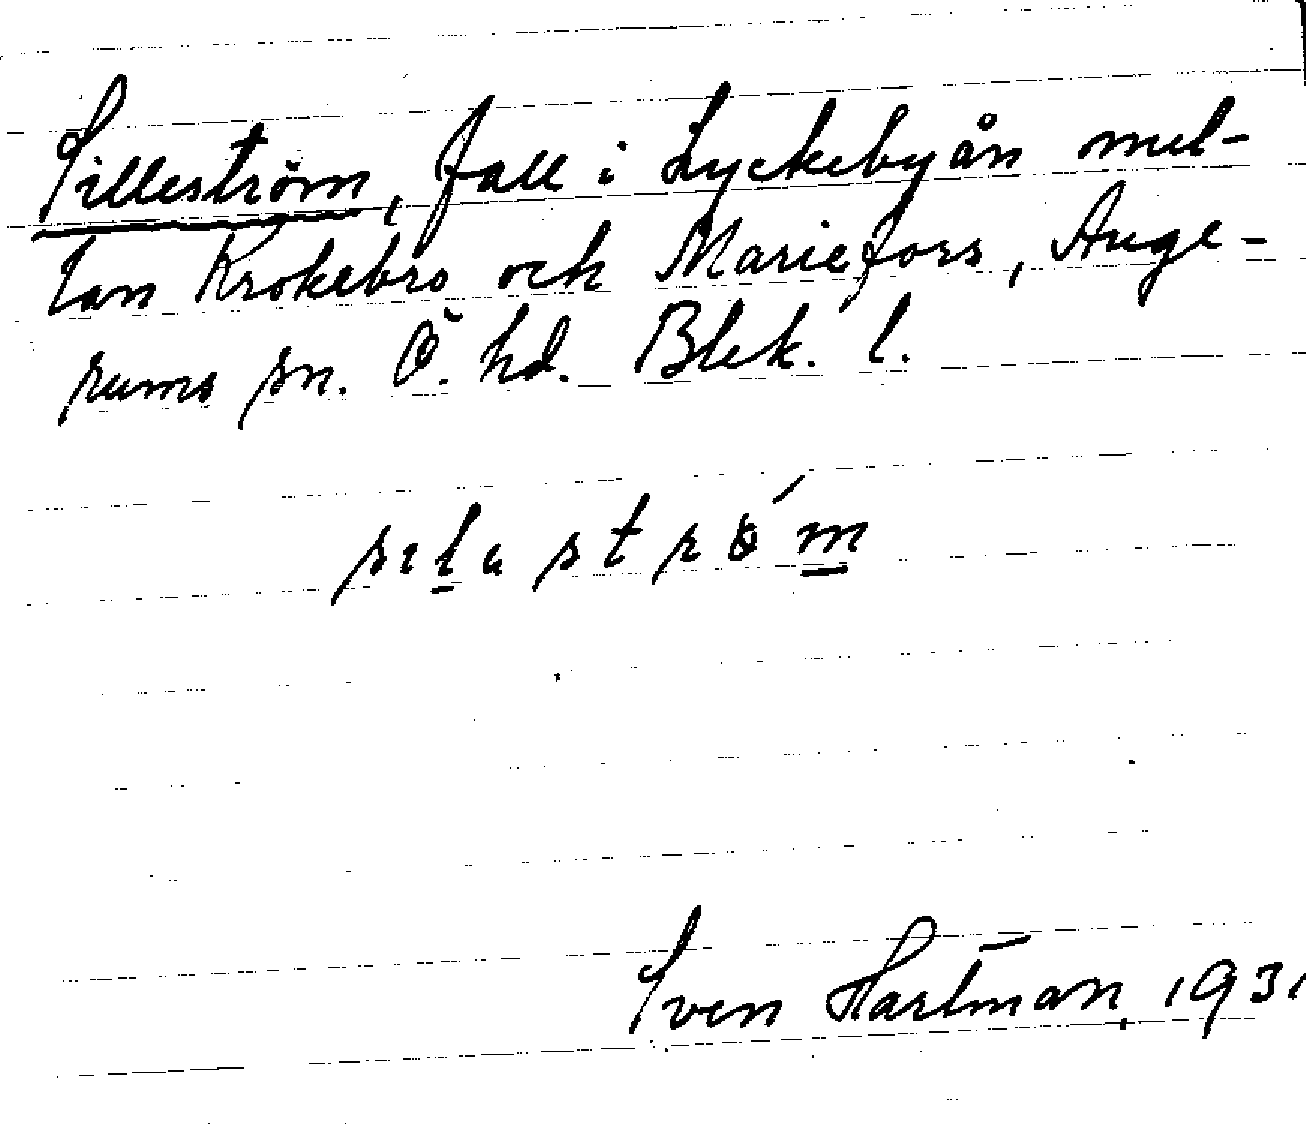 Silleström, fall i Lyckebyån mel-
lan Krokebro och Mariefors, Auge-
rums sn. Ö. hd. Blek. l.
Sven Hartman, 1931